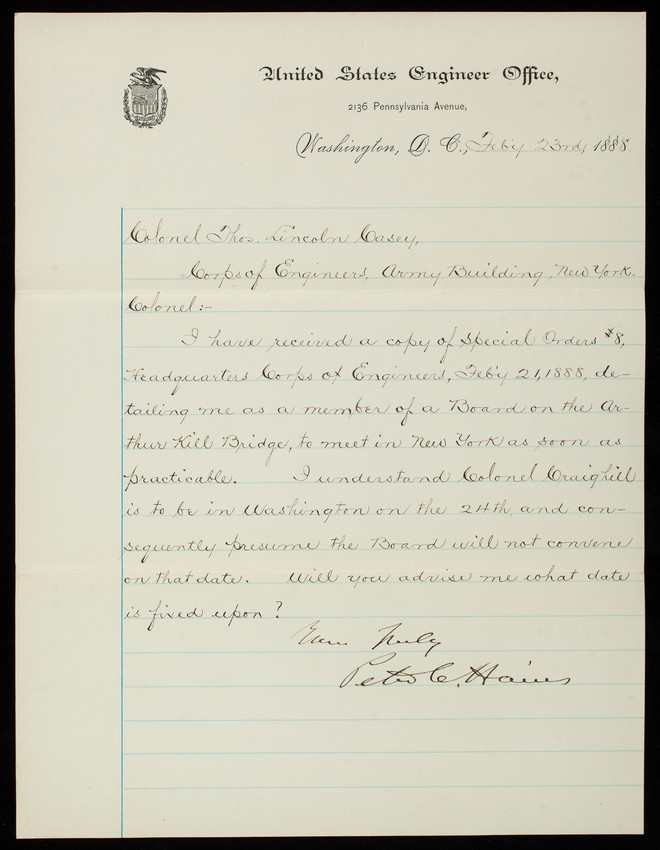 United States Engineer Office,
2136 Pennsylvania Avenue,
Washington, D. C., Feb'y 23rd, 1888
Colonel Thos. Lincoln Casey,
Corps of Engineers, Army Building, New York.
Colonel:-
I have received a copy of Special Orders #8,
Headquarters Corps of Engineers, Feb'y 21, 1888, de-
tailing me as a member of a Board on the Ar-
thur Kill Bridge, to meet in New York as soon as
practicable. I understand Colonel Craighill
is to be in Washington on the 24th, and con-
sequently presume the Board will not convene
on that date. Will you advise me what date
is fixed upon?
Yours Truly
Peter C. Hains